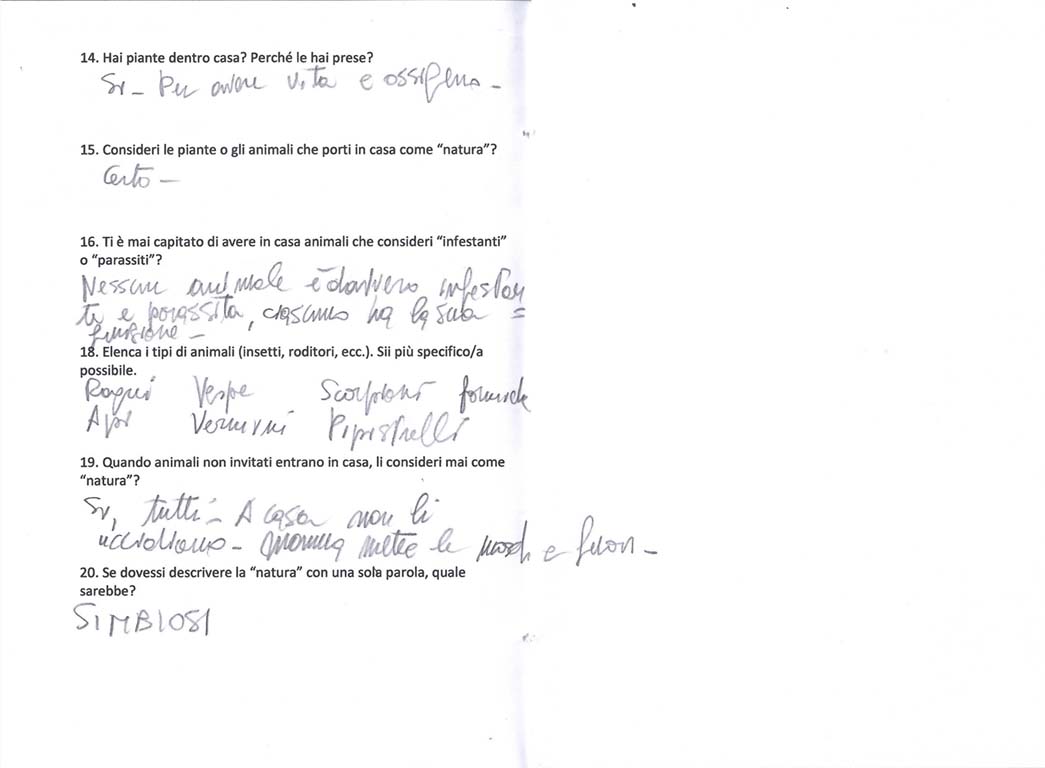 14. Hai piante dentro casa? Perché le hai prese?
Sì – Per avere vita e ossigeno –
15. Consideri le piante o gli animali che porti in casa come “natura”?
Certo –
16. Ti è mai capitato di avere in casa animali che consideri “infestanti”
o “parassiti”?
Nessun animale è davvero infestan
te e parassita, ciascuno ha la sua =
funzione –
18. Elenca i tipi di animali (insetti, roditori, ecc.). Sii più specifico/a
possibile.
Ragni Vespe Scorpioni formiche
Api Vermini Pipistrelli
19. Quando animali non invitati entrano in casa, li consideri mai come
“natura”?
Sì, tutti – A casa non li
uccidiamo – mamma mette le mosche fuori –
20. Se dovessi descrivere la “natura” con una sola parola, quale
sarebbe?
SIMBIOSI